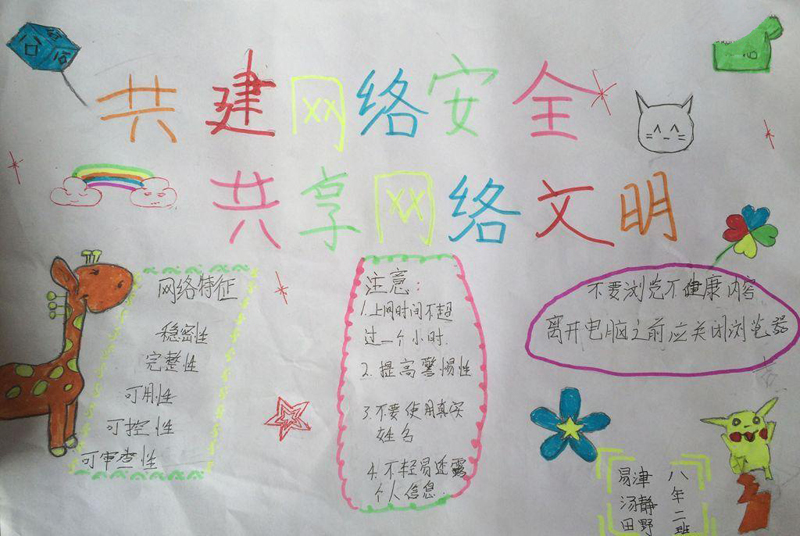 共建网络安全
共享网络文明
网络特征
稳密性
完整性
可用性
可控性
可审查性
注意:
1.上网时间不超
过一个小时.
2.提高警惕性
3.不要使用真实
姓名
4.不轻易透露
个人信息.
不要浏览不健康内容
离开电脑之前应关闭浏览器
八年二班
易津
汤静
田野